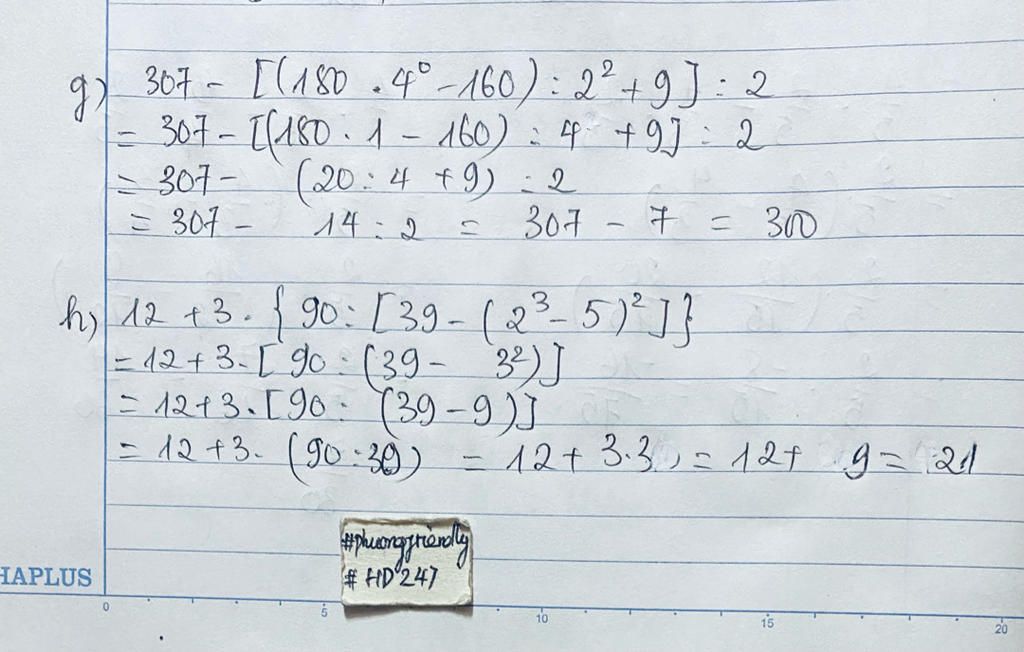 g) 307 - [(180 . 4⁰ - 160) : 2² + 9] : 2
= 307 - [(180 . 1 - 160) : 4 + 9] : 2
= 307 - (20 : 4 + 9) : 2
= 307 - 14 : 2 = 307 - 7 = 300
h) 12 + 3 . { 90 : [39 - (2³ - 5)²]}
= 12 + 3 . [ 90 : (39 - 3²)]
= 12 + 3 . [90 : (39 - 9)]
= 12 + 3 . (90 : 30) = 12 + 3.3 = 12 + 9 = 21
#phuongfriendly
# HD 247
HAPLUS
0 5 10 15 20